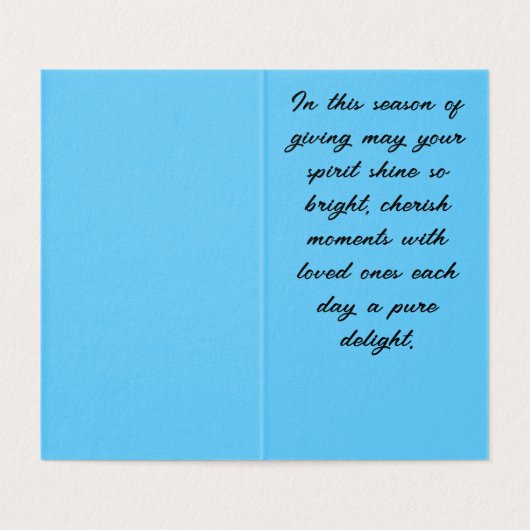 In this season of
giving may your
spirit shine so
bright, cherish
moments with
loved ones each
day a pure
delight.